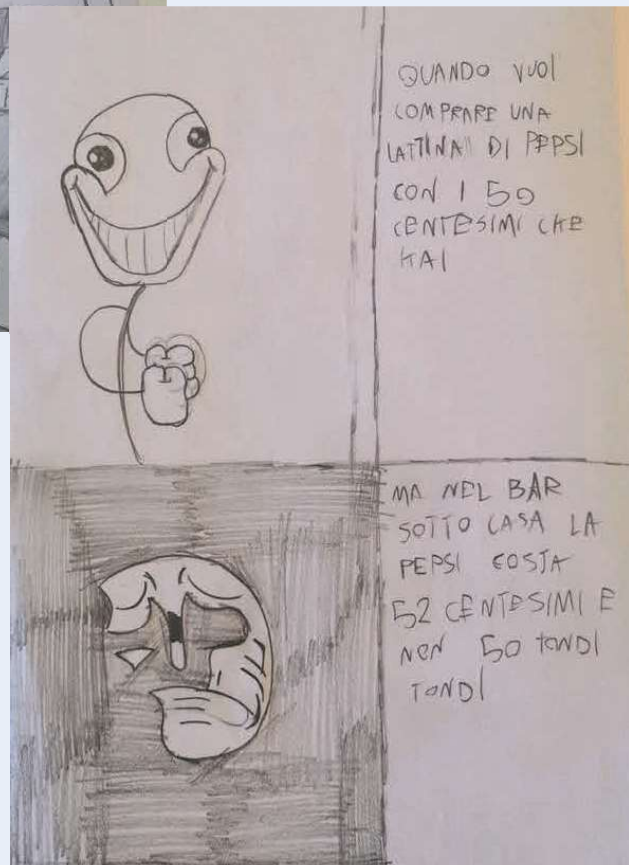 QUANDO VUOI
COMPRARE UNA
LATTINA DI PEPSI
CON I 50
CENTESIMI CHE
HAI
MA NEL BAR
SOTTO CASA LA
PEPSI COSTA
52 CENTESIMI E
NON 50 TONDI
TONDI